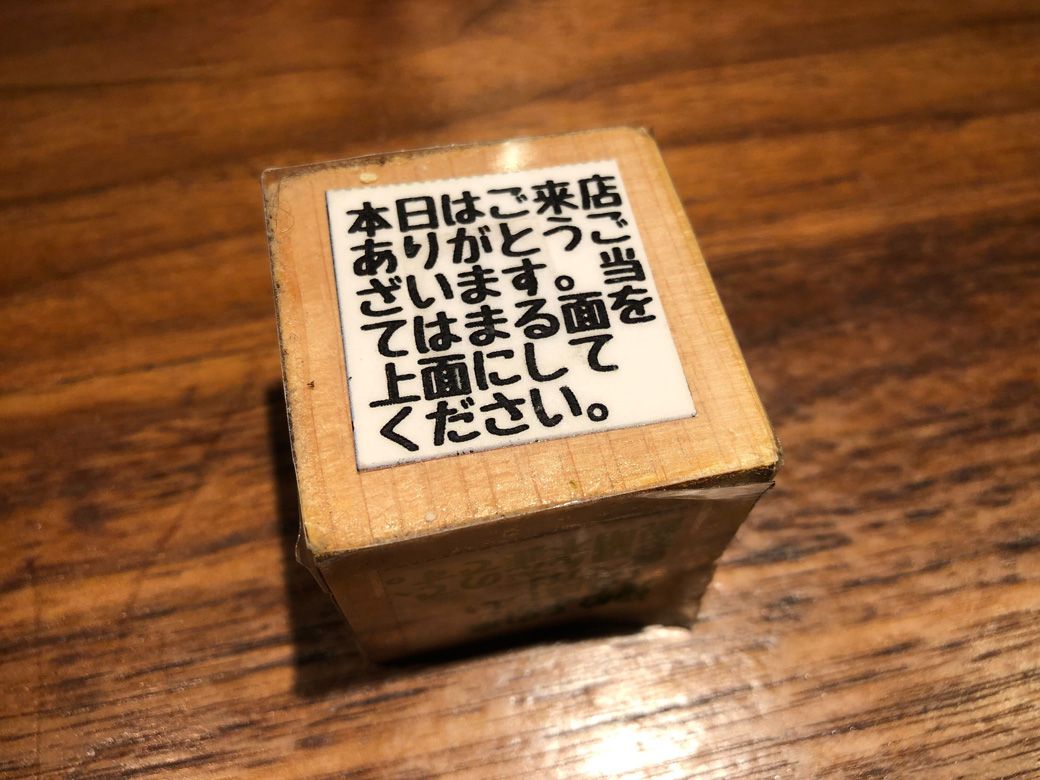 本日はご来店
ありがとうご
ざいます。当
てはまる面を
上面にして
ください。